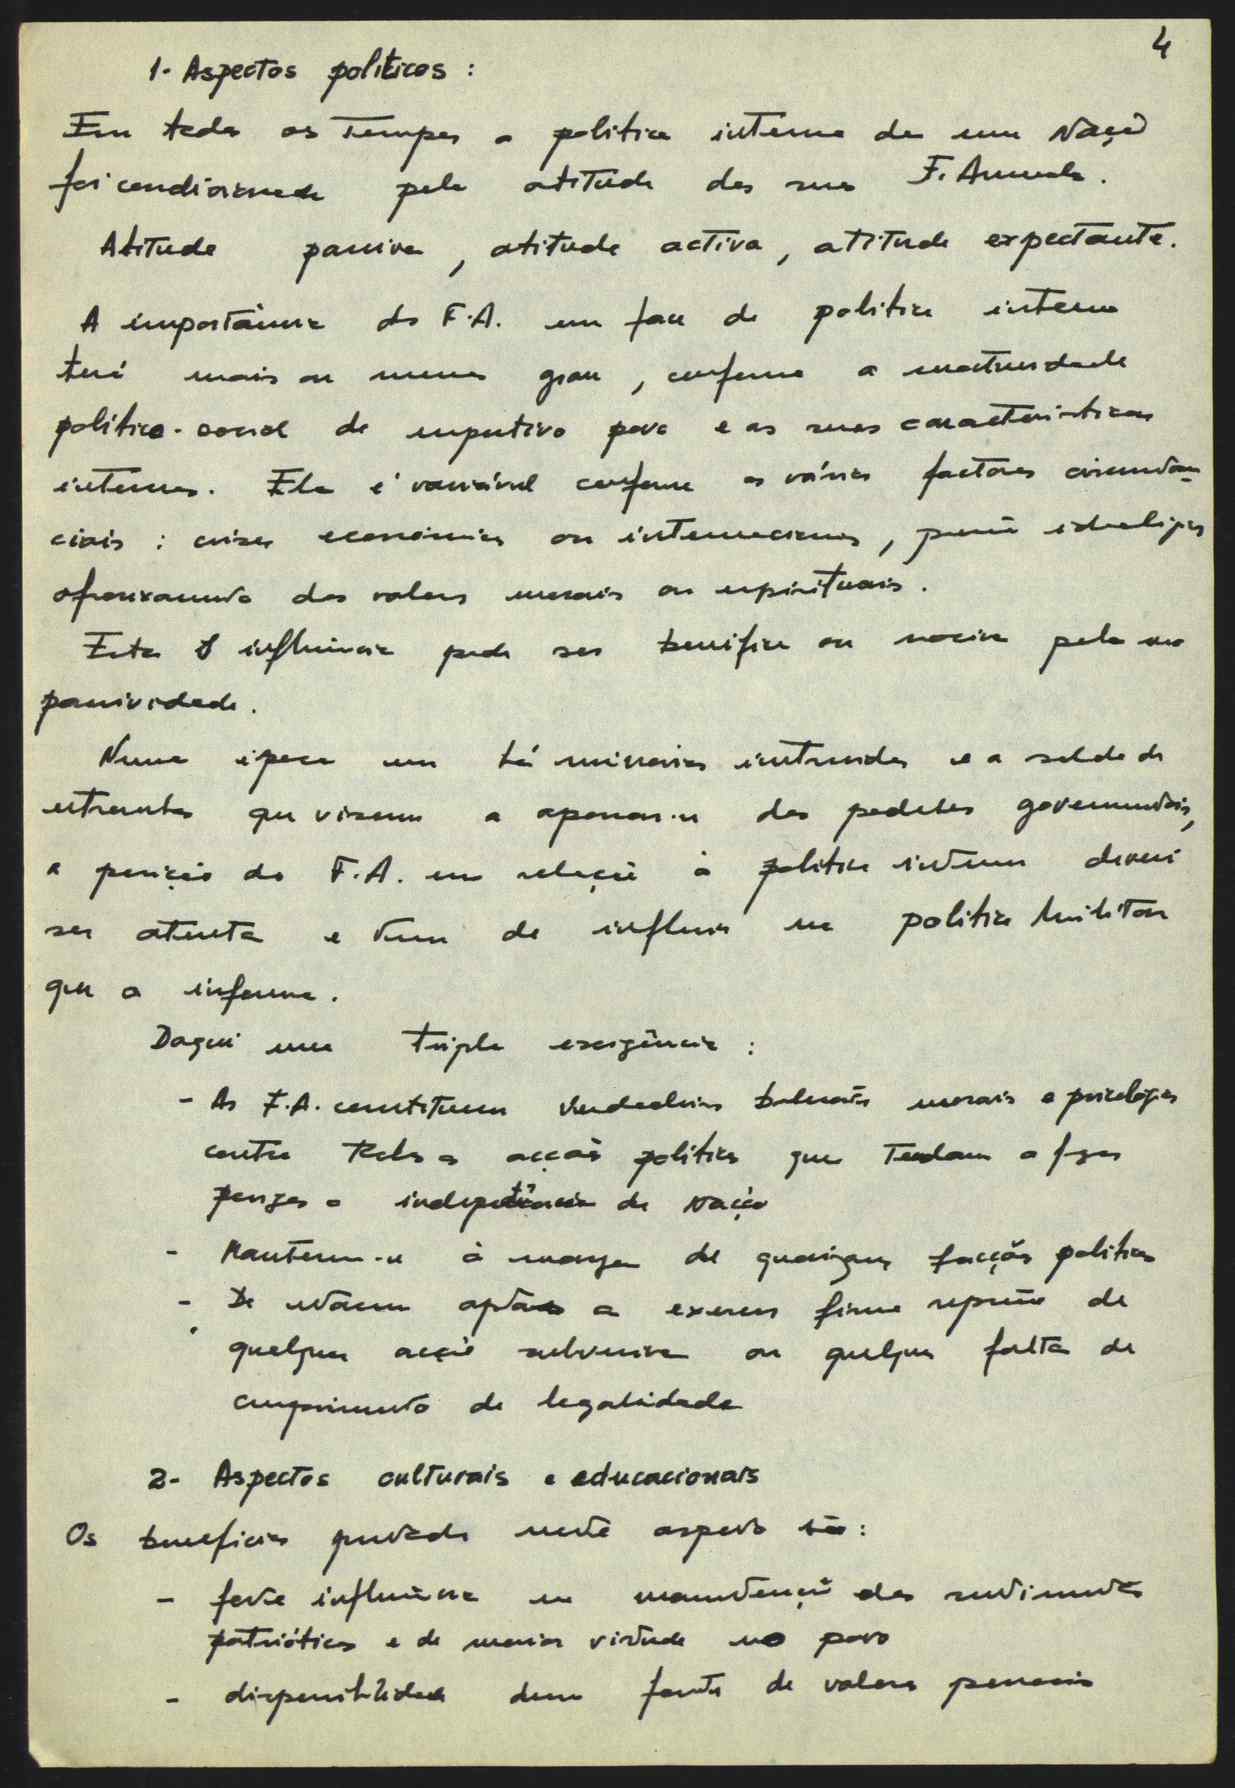 4
1- Aspectos politicos :
Em todos os Tempos a politica interna de uma Nação
foi condicionada pela atitude das suas F. Armadas.
Atitude passiva, atitude activa, atitude expectante.
A importância das F.A. em face da politica interna
terá mais ou menos grau, conforme a maturidade
politico-social do respectivo povo e as suas caracteristicas
internas. Ela é variável conforme os vários factores circunstan-
ciais : crises económicas ou internacionais, ideologias
afrouxamento dos valores morais ou espirituais.
Esta influência pode ser benifica ou nociva pela sua
passividade.
Numa época em há minorias a soldo de
que visam a apossar-se dos governamentais,
a posição das F.A. em relação à politica interna deverá
ser atenta e tem de influir na politica Militar
que a informa.
Daqui uma Tripla exigência :
- As F.A. constituem verdadeiros baluartes morais e psicológicos
contra Todas as acções politicas que Tendam a fazer
perigar a independência da Nação
- Manterem-se à margem de quaisquer facções politicas
- De estarem aptas a exercer firme repressão de
qualquer acção subversiva ou qualquer falta de
cumprimento da legalidade
2- Aspectos culturais e educacionais
Os beneficios prestados neste aspecto são:
- forte influência na manutenção dos sentimentos
patrióticos e de maior virtude no povo
- disponibilidade duma fonte de valores pessoais